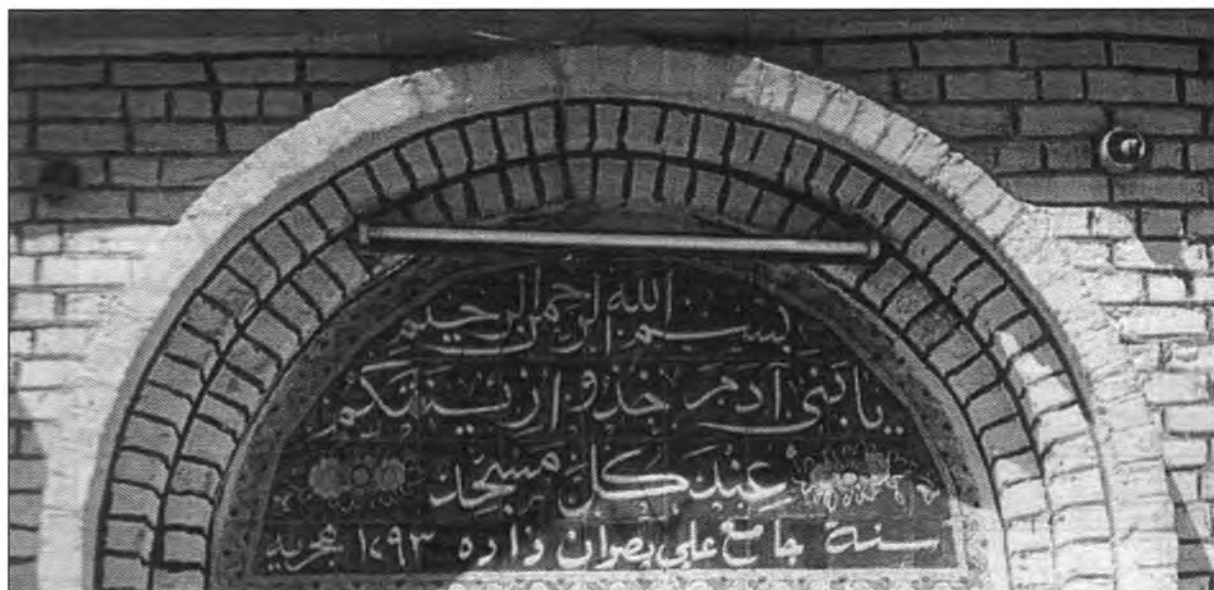 بسم الله الرحمن الرحيم
يا بني آدم خذوا زينتكم
عند كل مسجد
سنة جامع علي بصران زاده ١٢٩٣ هجريه